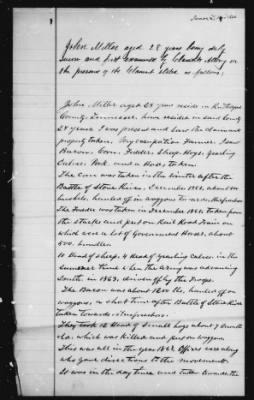 John Miller aged 28 years being duly
sworn and first examined by Claudes Atty on
the persons of the Claimant &c as follows.
John Miller aged 28 years reside in Rutherford
County, Tennessee, have resided in said County
28 years. I was present and saw the claimant
property taken. My occupation Farmer. I saw
Bacon, Corn, Fodder, Sheep, Hogs, Yearling
Calves Pork and a Horse, taken
The Corn was taken in the Winter after the
Battle of Stone River, December 1862, about
bushels, hauled off in waggons to
The Fodder was taken in December 1862, taken from
the stacks and put on Rail Road Train on
which were a lot of Government Horses, about
500 bundles
10 Head of sheep, 4 Head of yearling calves in the
Summer time when the army was advancing
South in 1863, driven off by the Troops.
The Bacon was about 1200 lbs, hauled off in
waggons, a short time after Battle of Stone River
taken towards Murfreesboro.
They took 12 Head of Small hogs about 7 months
old, which was killed and put on waggons
This was all in the year 1863. Officers
who gave directions to the movement.
It was in the day time and taken